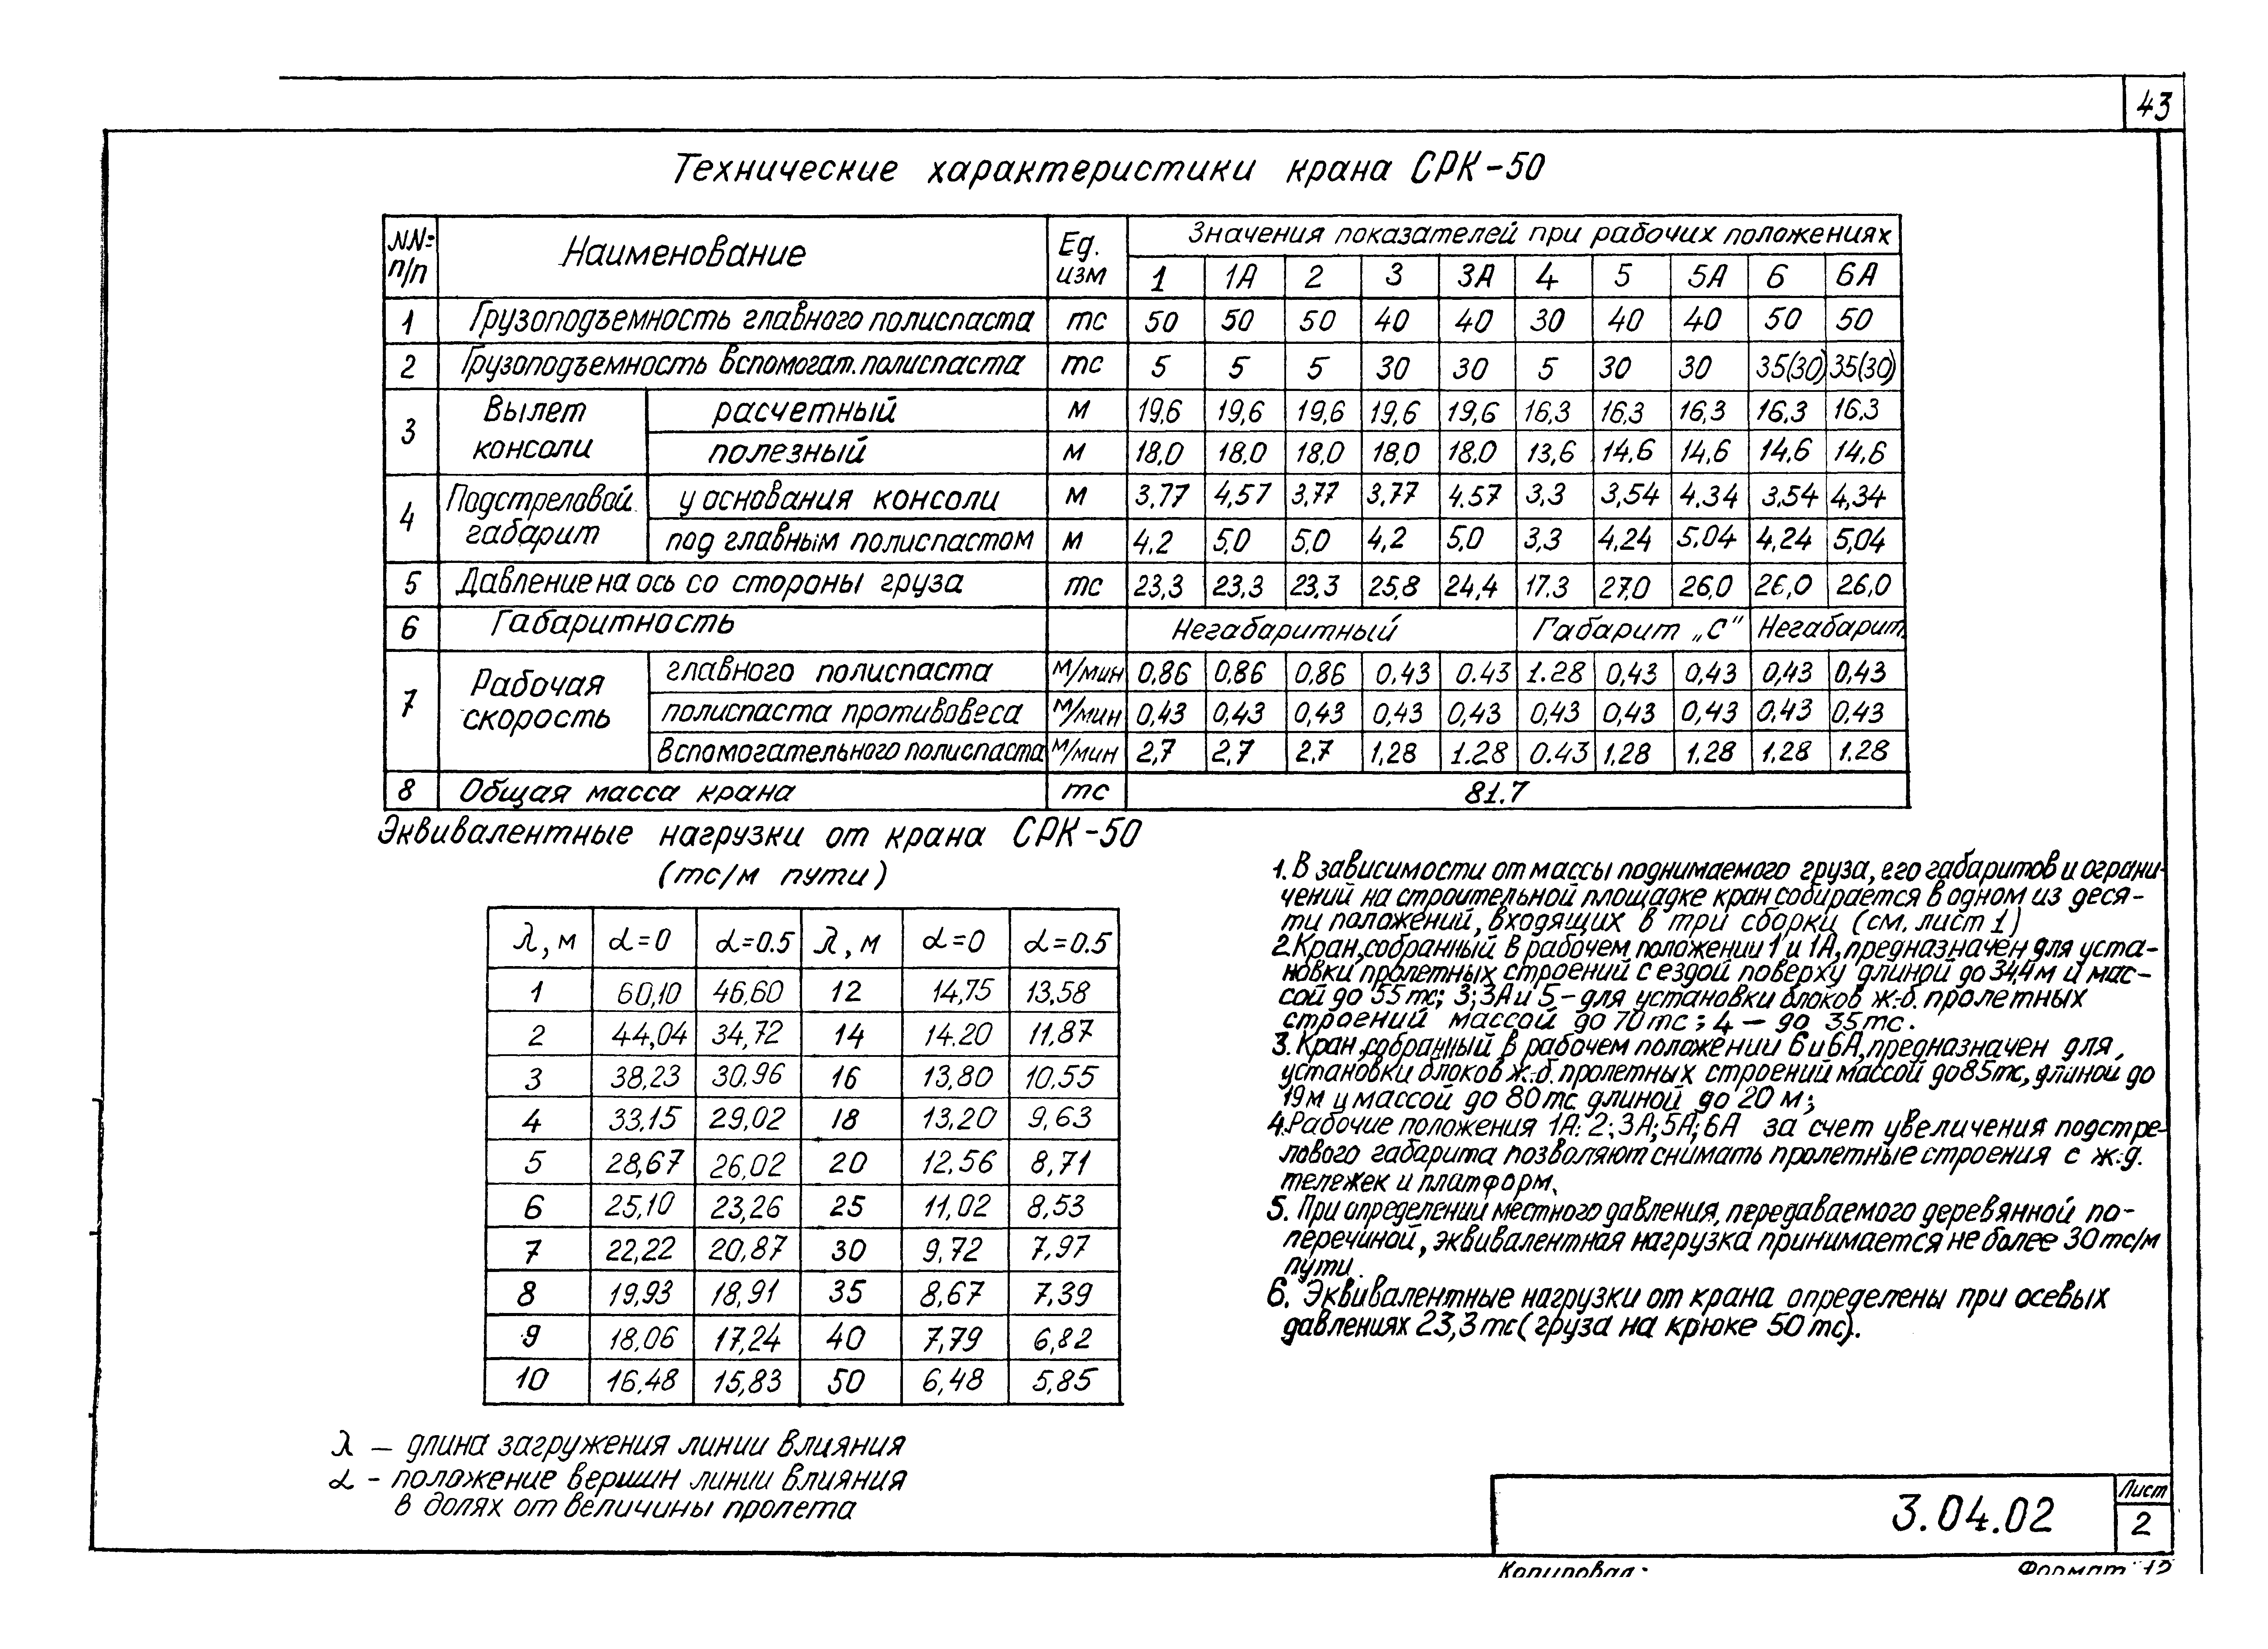 43
Технические характеристики крана СРК-50
NN= п/п Наименование Ед. изм Значения показателей при рабочих положениях
1 1А 2 3 3А 4 5 5А 6 6А
1 Грузоподъемность главного полиспаста тс 50 50 50 40 40 30 40 40 50 50
2 Грузоподъемность вспомогат. полиспаста тс 5 5 5 30 30 5 30 30 35(30) 35(30)
3 Вылет консоли расчетный м 19,6 19,6 19,6 19,6 19,6 16,3 16,3 16,3 16.3 16.3
полезный м 18,0 18,0 18,0 18,0 18,0 13,6 14,6 14,6 14,6 14,6
4 Подстреловой габарит у основания консоли м 3,77 4,57 3,77 3,77 4.57 3,3 3,54 4.34 3,54 4,34
под главным полиспастом м 4,2 5,0 5,0 4,2 5,0 3,3 4,24 5,04 4,24 5,04
5 Давление на ось со стороны груза тс 23,3 23,3 23,3 25,8 24,4 17.3 27,0 26,0 26,0 26,0
6 Габаритность Негабаритный Габарит „С" Негабарит.
7 Рабочая скорость главного полиспаста м/мин 0,86 0,86 0,86 0,43 0.43 1.28 0,43 0,43 0,43 0,43
полиспаста противовеса м/мин 0,43 0,43 0,43 0,43 0,43 0,43 0,43 0,43 0,43 0,43
вспомогательного полиспаста м/мин 2,7 2,7 2,7 1,28 1.28 0.43 1,28 1,28 1,28 1.28
8 Общая масса крана тс 81.7
Эквивалентные нагрузки от крана СРК-50
(тс/м пути)
λ, м α=0 α=0.5 λ, м α=0 α=0.5
1 60,10 46,60 12 14,75 13,58
2 44,04 34,72 14 14.20 11,87
3 38,23 30,96 16 13,80 10,55
4 33,15 29,02 18 13,20 9,63
5 28,67 26,02 20 12,56 8,71
6 25,10 23,26 25 11,02 8,53
7 22,22 20,87 30 9,72 7,97
8 19,93 18,91 35 8,67 7,39
9 18,06 17,24 40 7,79 6,82
10 16,48 15,83 50 6,48 5,85
λ – длина загружения линии влияния
α - положение вершин линии влияния
в долях от величины пролета
1. В зависимости от массы поднимаемого груза, его габаритов и ограни-
чений на строительной площадке кран собирается в одном из деся-
ти положений, входящих в три сборки (см. лист 1)
2. Кран, собранный в рабочем положении 1 и 1А, предназначен для уста-
новки пролетных строений с ездой поверху длиной до 34,4м и мас-
сой до 55тс; 3; 3А и 5 – для установки блоков ж.-б. пролетных
строений массой до 70тс; 4 – до 35тс.
3. Кран, собранный в рабочем положении 6 и 6А, предназначен для
установки блоков ж.-б. пролетных строений массой до 85тс, длиной до
19м и массой до 80тс длиной до 20 м;
4. Рабочие положения 1А; 2; 3А; 5А; 6А за счет увеличения подстре-
лового габарита позволяют снимать пролетные строения с ж.д.
тележек и платформ.
5. При определении местного давления, передаваемого деревянной по-
перечиной, эквивалентная нагрузка принимается не более 30тс/м
пути.
6. Эквивалентные нагрузки от крана определены при осевых
давлениях 23,3тс (груза на крюке 50тс).
3.04.02
Лист
2
Копировал: Формат 12